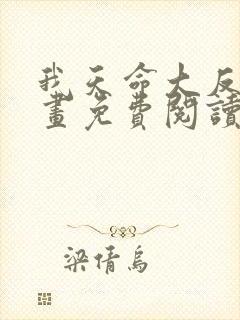 我天命大反
畫免費閱讀
梁倩烏